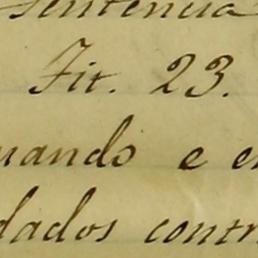 sentencia
Tit. 23.
uando e e
dados contr